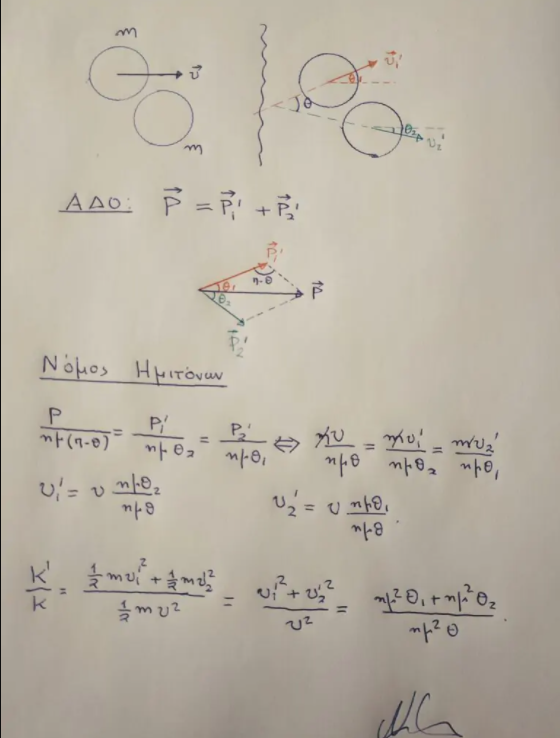 m
υ⃗
m
υ⃗₁'
θ₁
θ
θ₂
υ₂'
ΑΔΟ: P⃗ = P⃗₁' + P⃗₂'
P⃗₁'
π-θ
θ₁
θ₂
P⃗
P⃗₂'
Νόμος Ημιτόνων
P/ημ(π-θ) = P₁'/ημθ₂ = P₂'/ημθ₁ ⇔ mυ/ημθ = mυ₁'/ημθ₂ = mυ₂'/ημθ₁
υ₁' = υ ημθ₂/ημθ υ₂' = υ ημθ₁/ημθ.
K'/K = (½mυ₁'² + ½mυ₂'²)/(½mυ²) = (υ₁'² + υ₂'²)/υ² = (ημ²θ₁ + ημ²θ₂)/ημ²θ.